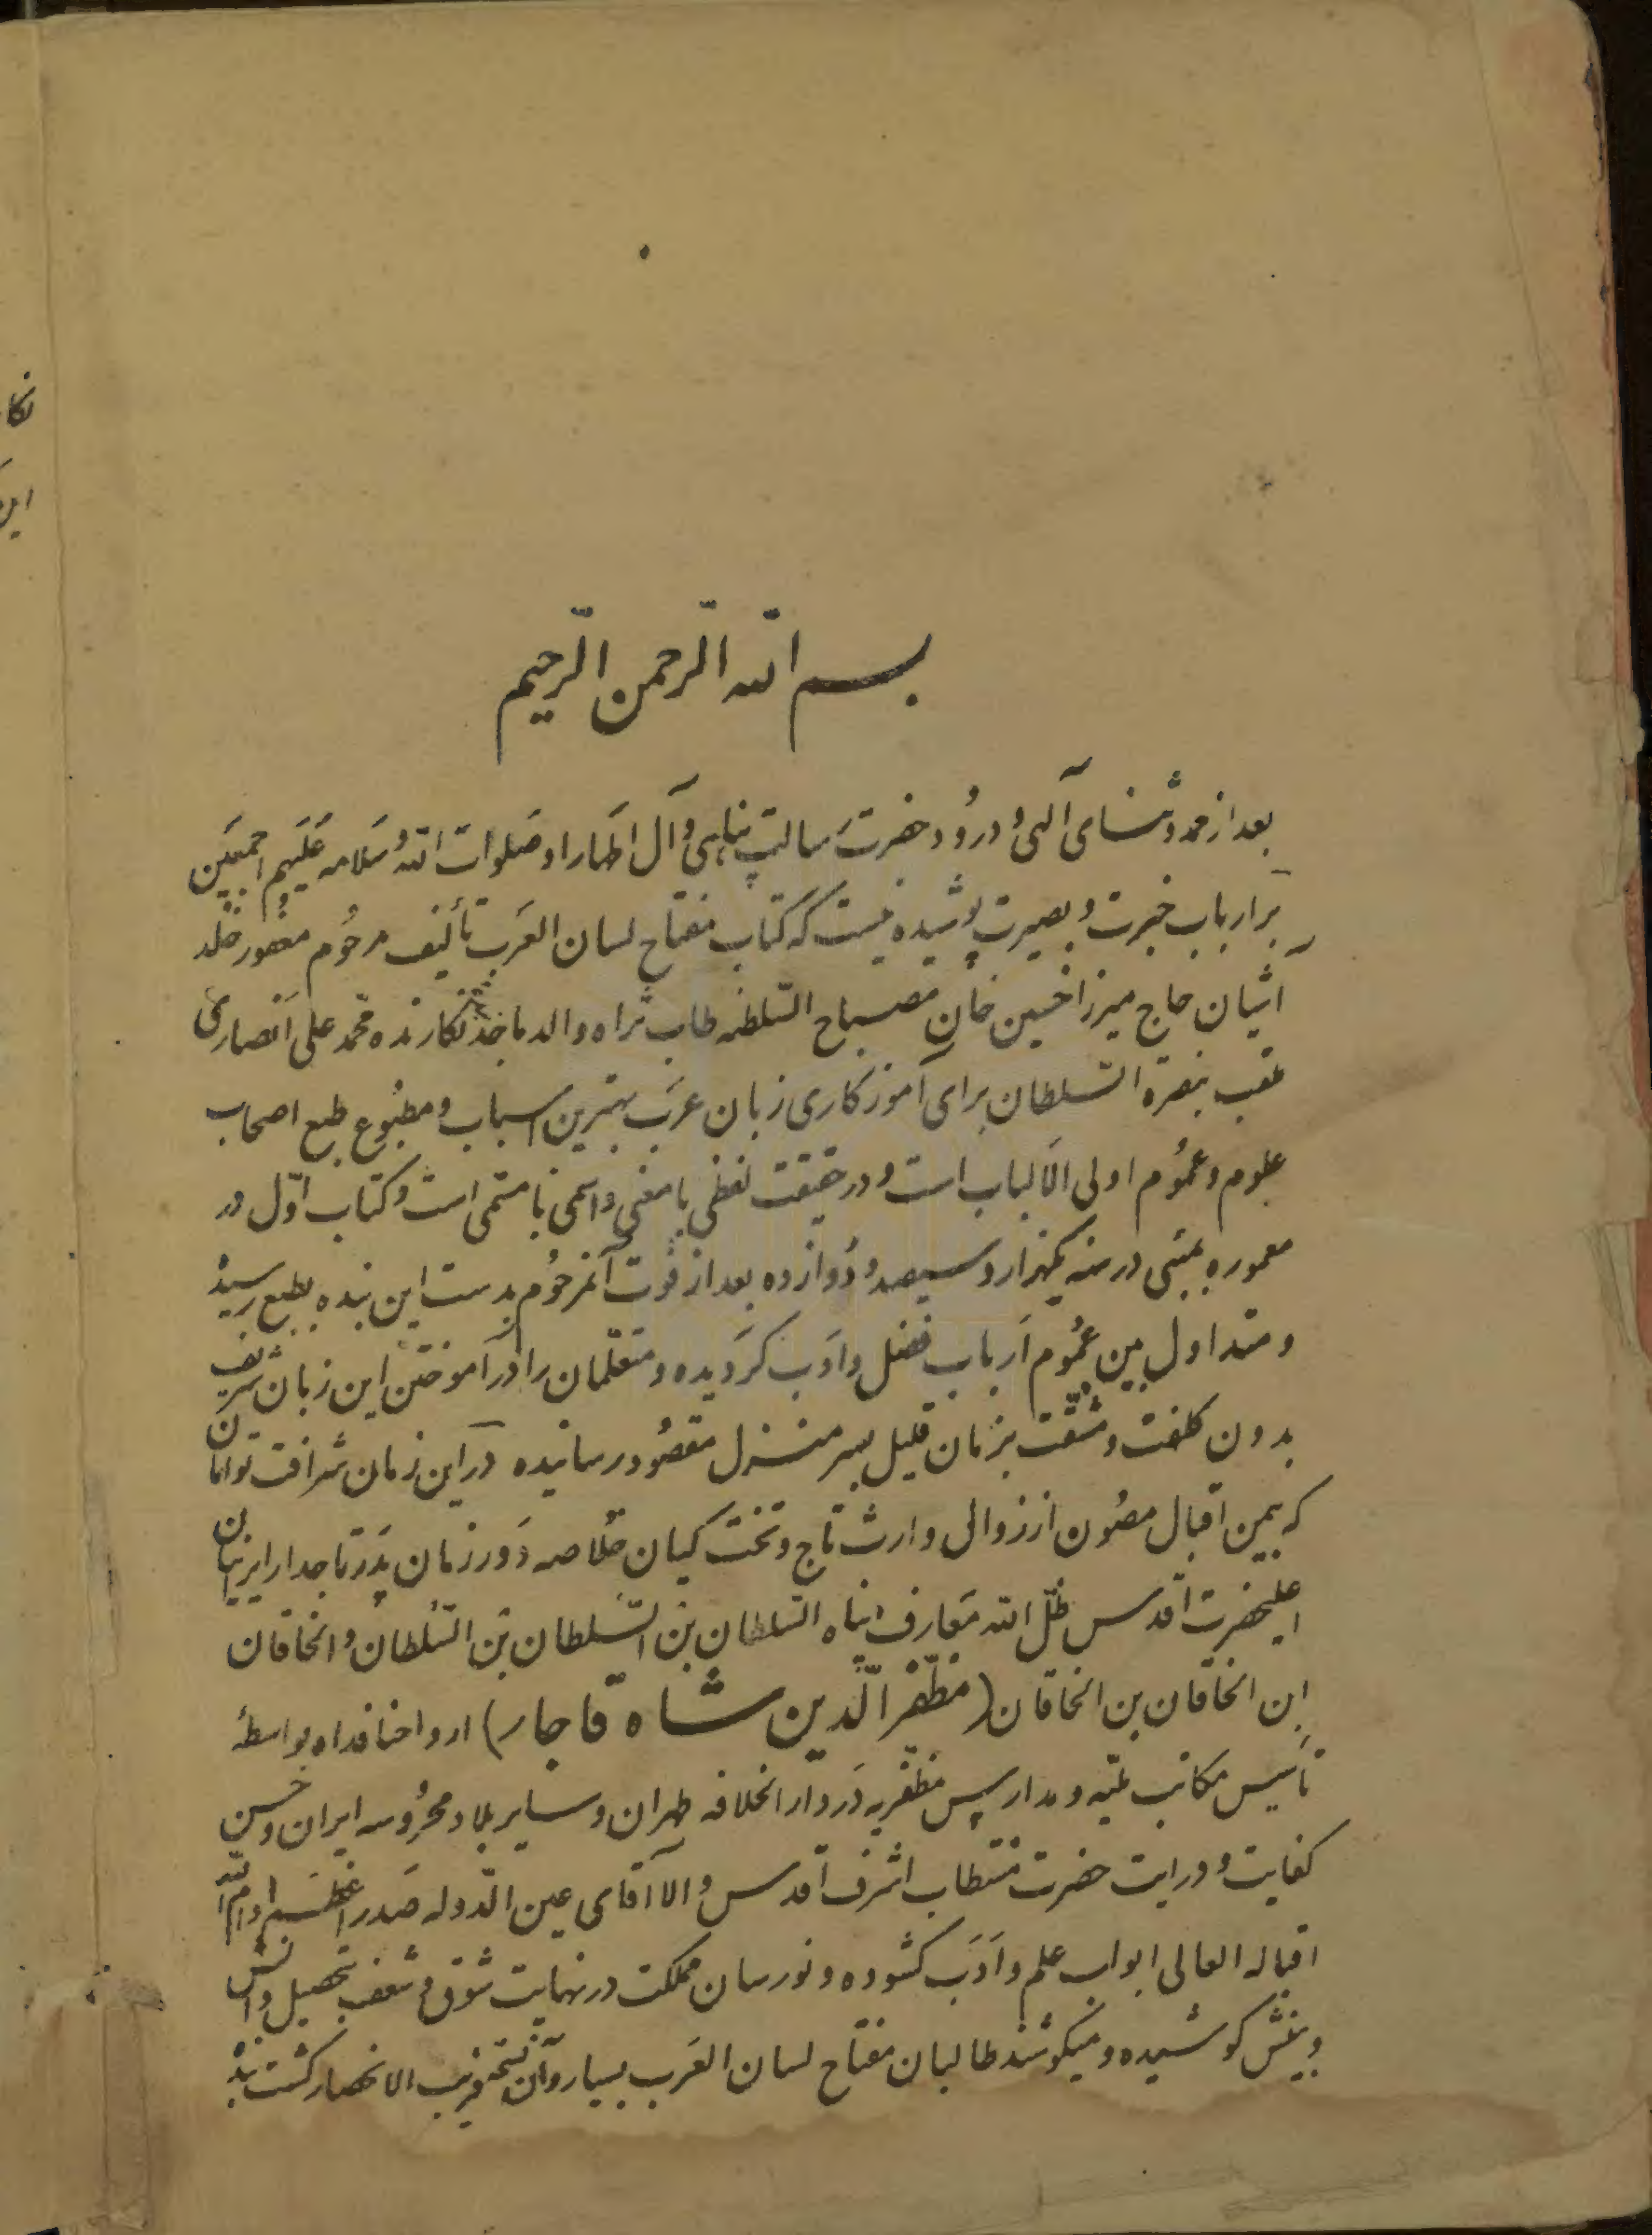 بسم الله الرحمن الرحیم
بعد از حمد و ثنای آلهی و درود حضرت رسالت پناهی و آل اطهار او صلوات الله و سلامه علیهم اجمعین
بر ارباب خبرت و بصیرت پوشیده نیست که کتاب مفتاح لسان العرب تألیف مرحوم مغفور خلد
آشیان حاج میرزا حسین خان مصباح السلطنه طاب ثراه والد ماجد نگارنده محمد علی انصاری
ملقب بنصرة السلطان برای آموزکاری زبان عرب بهترین اسباب و مطبوع طبع اصحاب
علوم و عموم اولی الالباب است و در حقیقت لفظی با معنی و اسمی با مسمی است و کتاب اوّل در
معموره بمبئی در سنه یکهزار و سیصد و دوازده بعد از فوت آنمرحوم بدست این بنده بطبع رسید
و متداول بین عموم ارباب فضل و ادب کردیده و متعلمان را در آموختن این زبان شریف
بدون کلفت و مشقت بزمان قلیل بسر منزل مقصود رسانیده در این زمان شرافت توامان
که بیمن اقبال مصون از زوال وارث تاج و تخت کیان خلاصه دور زمان پدر تاجدار ایرانیان
اعلیحضرت اقدس ظلّ الله معارف پناه السلطان بن السّلطان بن السّلطان و الخاقان
ابن الخاقان بن الخاقان (مظفّر الدّین شاه قاجار) ارواحنا فداه بواسطهٔ
تأسیس مکاتب ملیه و مدارس مظفریه در دار الخلافه طهران و سایر بلاد محروسه ایران و حسن
کفایت و درایت حضرت مستطاب اشرف اقدس والا آقای عین الدّوله صدر اعظم ادام الله
اقباله العالی ابواب علم و ادب کشوده و نورسان مملکت در نهایت شوق و شعف بتحصیل دانش
و بینش کوشیده و میکوشند طالبان مفتاح لسان العرب بسیار و آن نسخه قریب الانحصار کشت
نکا
این